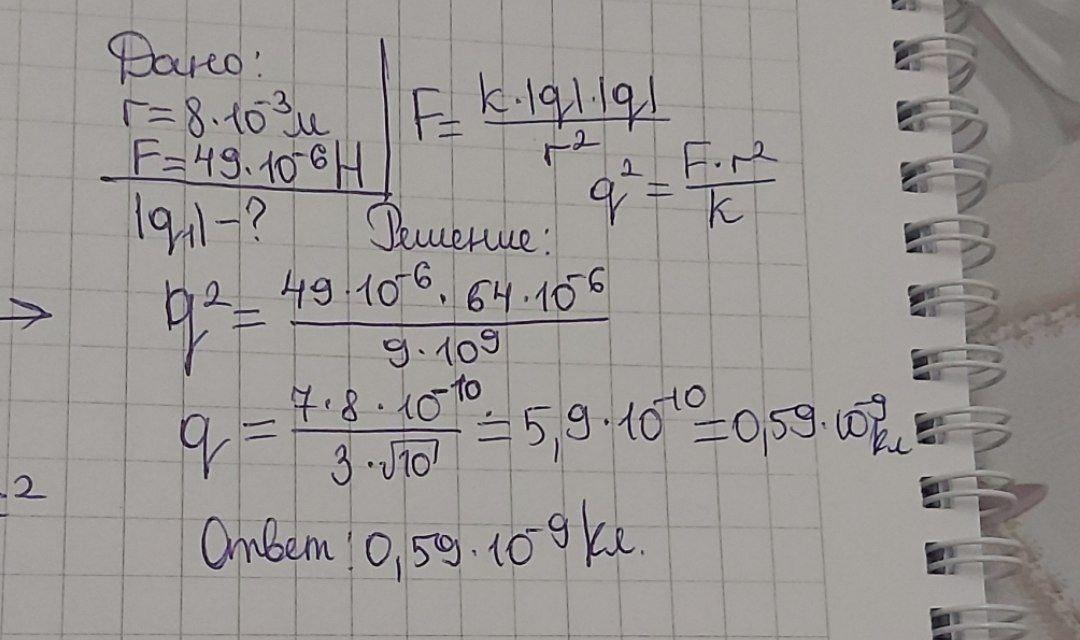 Дано:
r = 8·10⁻³ м
F = 49·10⁻⁶ Н
|q₁| - ?
F = k·|q|·|q| / r²
q² = F·r² / k
Решение:
→ q² = 49·10⁻⁶ · 64·10⁻⁶ / 9·10⁹
q = 7·8·10⁻¹⁰ / 3·√10 = 5,9·10⁻¹⁰ = 0,59·10⁻⁹ кл
2
Ответ: 0,59·10⁻⁹ Кл.